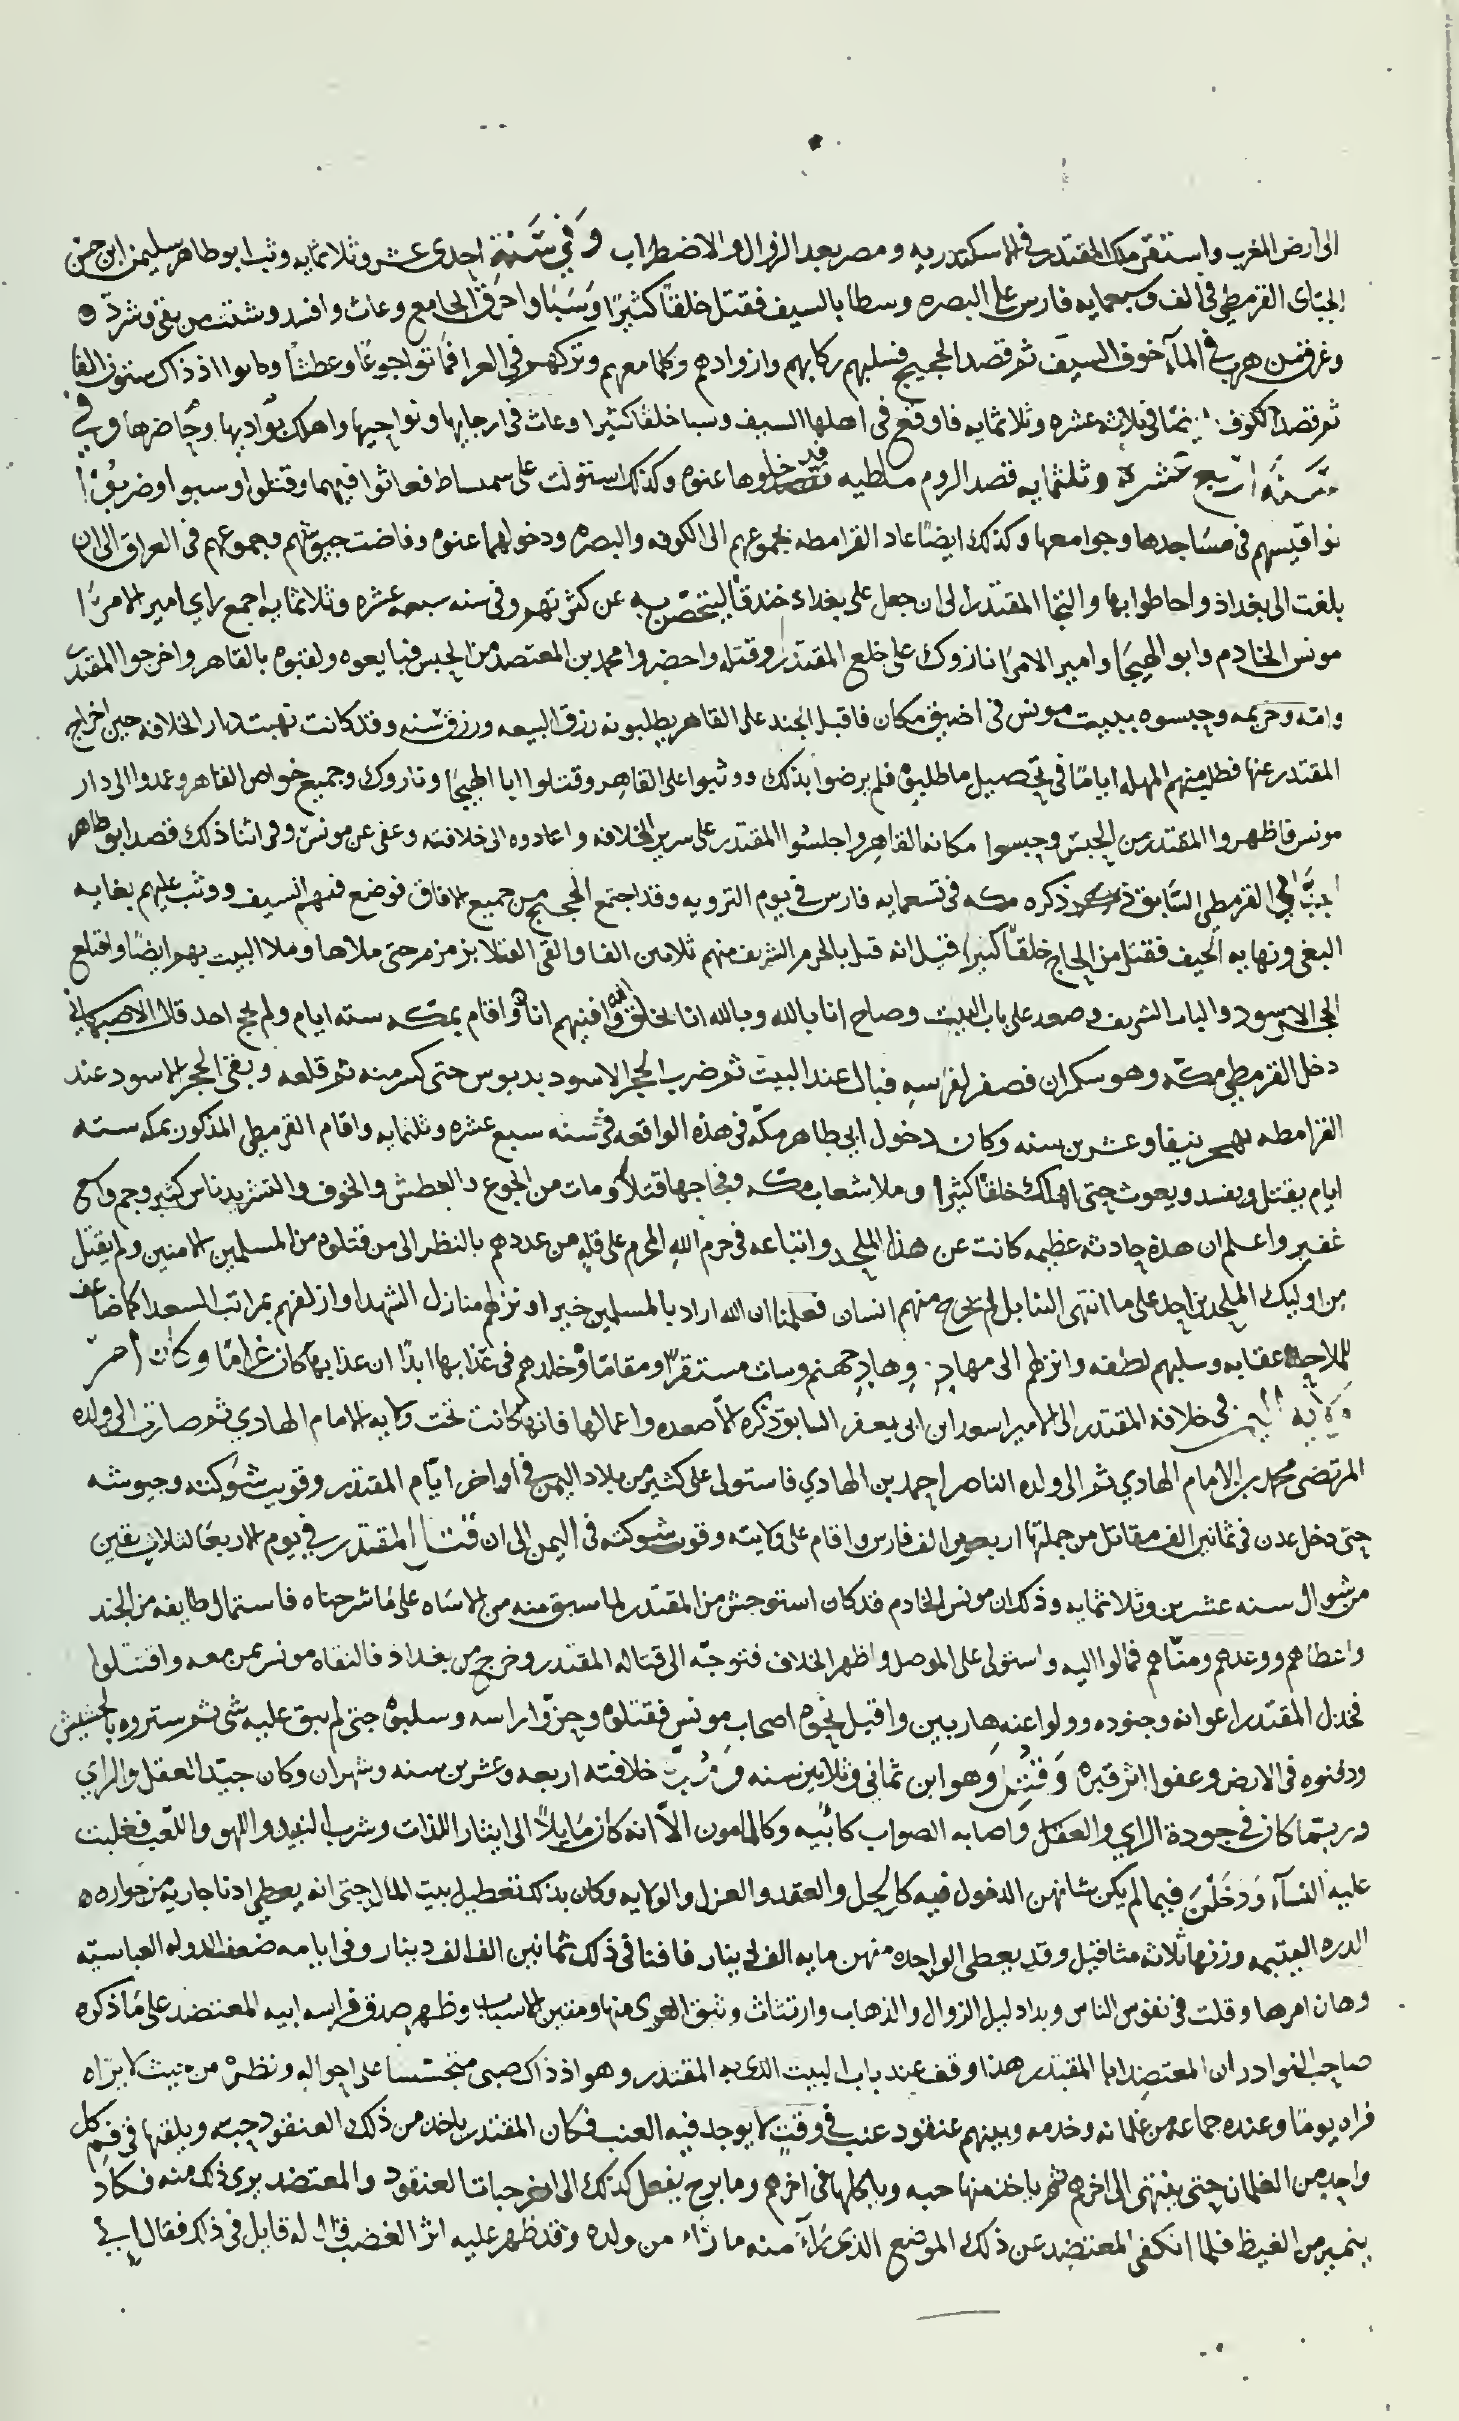 الى ارض المغرب واستقر ملك المقتدر في الاسكندريه ومصر بعد الزوال والاضطراب وفي سنة احدى عشر وثلاثمايه وثب ابو طاهر سليمن ابن حسن
الجبّاى القرمطي في الف وسبعمايه فارس على البصره وسطا بالسيف فقتل خلقًا كثيرًا وسبا واحرق الجامع وعاث وافسد وشتت من بقى وشرّد
وغرق من هرب في المآء خوف السيف ثم قصد الحجيج فسلبهم ركابهم وازوادهم وكلما معهم وتركهم في العرا فماتوا جوعًا وعطشًا وكانوا اذ ذاك ستون الفا
ثم قصد الكوفه في ثلاثه عشره وثلاثمايه فاوقع في اهلها السيف وسبا خلقًا كثيرا وعاث في ارجايها ونواحيها واهلك بواديها وحاضرها وفي
سنة اربع عشرة وثلثمايه قصد الروم ملطيه فدخلوها عنوه وكذلك استولت على سمساط فعاثوا فيهما وقتلوا وسبوا وضربوا
نواقيسهم في مساجدها وجوامعها وكذلك ايضًا عاد القرامطه بجموعهم الى الكوفه والبصره ودخولهما عنوه وفاضت جيوشهم وجموعهم في العراق الى ان
بلغت الى بغداذ واحاطوا بها والتجا المقتدر الى ان جعل على بغداذ خندقًا ليتحصّن به عن كثرتهم وفي سنه سبعه عشره وثلاثمايه اجمع راي امير الامرا
مونس الخادم وابو الهيجا وامير الامرا نازوك على خلع المقتدر وقتله واحضروا محمد بن المعتصد من الحبس فبايعوه ولقبوه بالقاهر واخرجوا المقتدر
وامّه وحريمه وحبسوه ببيت مونس في اضيق مكان فاقبل الجند على القاهر يطلبونه رزق البيعه ورزق سنه وقد كانت نهبت دار الخلافه حين اخراج
المقتدر عنها فطلب منهم المهله ايامًا في تحصيل ما طلبوه فلم يرضوا بذلك ووثبوا على القاهر وقتلوا ابا الهيجا ونازوك وجميع خواص القاهر وعمدوا الى دار
مونس فاظهروا المقتدر من الحبس وحبسوا مكانه القاهر واجلسوا المقتدر على سرير الخلافه واعادوه الى خلافته وعفى عن مونس وفي اثنا ذلك قصد ابو طاهر
الجبّاي القرمطي السّابق ذكره مكه في تسعمايه فارس في يوم الترويه وقد اجتمع الحجيج من جميع الافاق فوضع فيهم السيف ووثب عليهم بغايه
البغي ونهايه الحيف فقتل من الحاج خلقًا كثيرا فقيل انه قتل بالحرم الشريف منهم ثلاثين الفا والقى القتلا بزمزم حتى ملاها وملا البيت بهم ايضًا واقتلع
الحجر الاسود والباب الشريف وصعد على باب البيت وصاح انا بالله وبالله انا يخلق الله وافنيهم انا واقام بمكه سته ايام ولم يحج احد قال الاصبهاني
دخل القرمطي مكه وهو سكران فصفر لفرسه فبال عند البيت ثم ضرب الحجر الاسود بدبوس حتى كسر منه ثم قلعه وبقى الحجر الاسود عند
القرامطه بهجر نيفا وعشرين سنه وكان دخول ابي طاهر مكه في هذه الواقعه في سنه سبع عشره وثلثمايه واقام القرمطي المذكور بمكه سته
ايام يقتل ويفسد ويعوث حتى اهلك خلقًا كثيرا وملا شعاب مكه وفجاجها قتلا ومات من الجوع والعطش والخوف والتشريد ناس كثير وجم واسع
غفير واعلم ان هذه حادثه عظيمه كانت عن هذا الملحد واتباعه في حرم الله المحرم على قله من عددهم بالنظر الى من قتلوه من المسلمين الامنين ولم يقتل
من اوليك الملحدين احد على ما انتهى الينا بل لم يخرج منهم انسان فعلمنا ان الله اراد بالمسلمين خيرا ونزلهم منازل الشهدا وازلفهم بمراتب السعدا كما ضاعف
للملاحده عقابه وسلبهم لطفه وانزلهم الى مهاد وهاد جهنم وسات مستقرًا ومقامًا وخلدهم في عذابها ابدًا ان عذابها كان غرامًا وكان امر
ولايه اليمن في خلافه المقتدر الى الامير اسعد ابن ابي يعفر السابق ذكره الا صعده واعمالها فانها كانت تحت ولايه الامام الهادي ثم صارت الى ولده
المرتضى محمد بن الامام الهادي ثم الى ولده الناصر احمد بن الهادي فاستولى على كثير من بلاد اليمن في اواخر ايّام المقتدر وقويت شوكته وجيوشه
حتى دخل عدن في ثمانين الف مقاتل من جملتها اربعين الف فارس واقام على ولايته وقوت شوكته في اليمن الى ان قتل المقتدر في يوم الاربعا لثلاث بقين
من شوال سنه عشرين وثلاثمايه وذلك ان مونس الخادم قد كان استوحش من المقتدر لما سبق منه من الاساه على ما شرحناه فاستمال طايفه من الجند
واعطاهم ووعدهم ومنّاهم فمالوا اليه واستولى على الموصل واظهر الخلاف فتوجّه الى قتاله المقتدر وخرج من بغداذ فالتقاه مونس بمن معه واقتتلوا
فخذل المقتدر اعوانه وجنوده وولوا عنه هاربين واقبل نحوه اصحاب مونس فقتلوه وحزّوا راسه وسلبوه حتى لم يبق عليه شى ثم ستروه بالحشيش
ودفنوه في الارض وعفوا اثر قبره وقتل وهو ابن ثماني وثلاثين سنه ومدّة خلافته اربعه وعشرين سنه وشهران وكان جيّد العقل والراي
وربّما كان في جودة الراي والعقل واصابه الصواب كابيه وكالمامون الّا انه كان مايلًا الى ايثار اللذات وشرب النبيذ واللهو واللعب فغلبت
عليه النسآء ودخلن فيما لم يكن شانهن الدخول فيه كالحل والعقد والعزل والولايه وكان بذلك تعطيل بيت المال حتى انه يعطي ادنا جاريه من جواره
الدره اليتيمه وزنها ثلاثه مثاقيل وقد يعطي الواحده منهن مايه الف دينار فافنا في ذلك ثمانين الف الف دينار وفي ايامه ضعفت الدوله العباسيّه
وهان امرها وقلت في نفوس الناس وبدا دليل الزوال والذهاب وارتثاث وثيق العرى منها ومتين الاسباب وظهر صدق فراسه ابيه المعتضد على ما ذكره
صاحب النوادر ان المعتضد ابا المقتدر هذا وقف عند باب البيت الذي به المقتدر وهو اذ ذاك صبي متجسّسًا على احواله ونظره من حيث لا يراه
فراه يومًا وعنده جماعه من غلمانه وخدمه وبينهم عنقود عنب في وقتٍ لا يوجد فيه العنب فكان المقتدر ياخذ من ذلك العنقود حبه ويلقيها في فم كل
واحد من الغلمان حتى ينتهى الى اخرهم ثم ياخذ منها حبه وياكلها في اخرهم وما برح يفعل كذلك الى اخر حبات العنقود والمعتضد يرى ذلك منه فكاد
يتميز من الغيظ فلما انكفى المعتضد عن ذلك الموضع الذي رآى منه ما رآى من ولده وقد ظهر عليه اثر الغضب قال له قايل في ذلك فقال اني